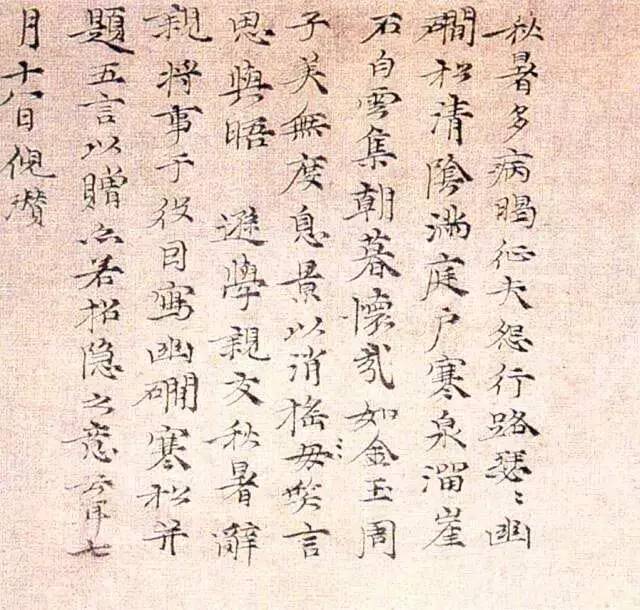 秋暑多病暍征夫怨行路瑟ミ幽
磵松清陰滿庭戶寒泉溜崖
石白雲集朝暮懷哉如金玉周
子美無度息景以消搖毋㗛言
思與晤 遜學親友秋暑辭
親將事于役因寫幽磵寒松并
題五言以贈亦若招隱之意云耳七
月十八日倪瓚